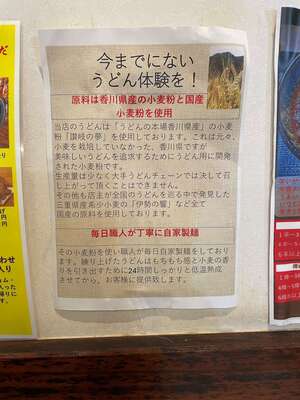 今までにない
うどん体験を！
原料は香川県産の小麦粉と国産
小麦粉を使用
当店のうどんは「うどんの本場香川県産」の小麦
粉「讃岐の夢」を使用しております。これは元々、
小麦を栽培していなかった、香川県ですが
美味しいうどんを追求するためにうどん用に開発
された小麦粉です。
生産量は少なく大手うどんチェーンでは決して召
し上がって頂くことはできません。
その他も店主が全国のうどんを巡る中で発見した
三重県産希少小麦の「伊勢の響」など全て
国産の原料を使用しております。
毎日職人が丁寧に自家製麺
その小麦粉を使い職人が毎日自家製麺をしており
ます。練り上げたうどんはもちもち感と小麦の香
りを引き出すために24時間しっかりと低温熟成
させてから、お客様に提供致します。